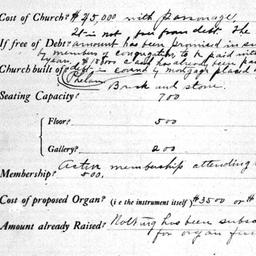 Cost of Church? $75,000 with parsonage
It is not free from debt. The
If free of Debt? amount has been promised in
by members of congregation to be paid
year. $18000 and has already been paid
Church built of? debt is covered by mortgage placed
Brick and stone.
Seating Capacity? 700
Floor? 500
Gallery? 200
Active membership attending
Membership? 500.
Cost of proposed Organ? (i e the instrument itself) $3500 or
Amount already Raised? Nothing has been
for organ